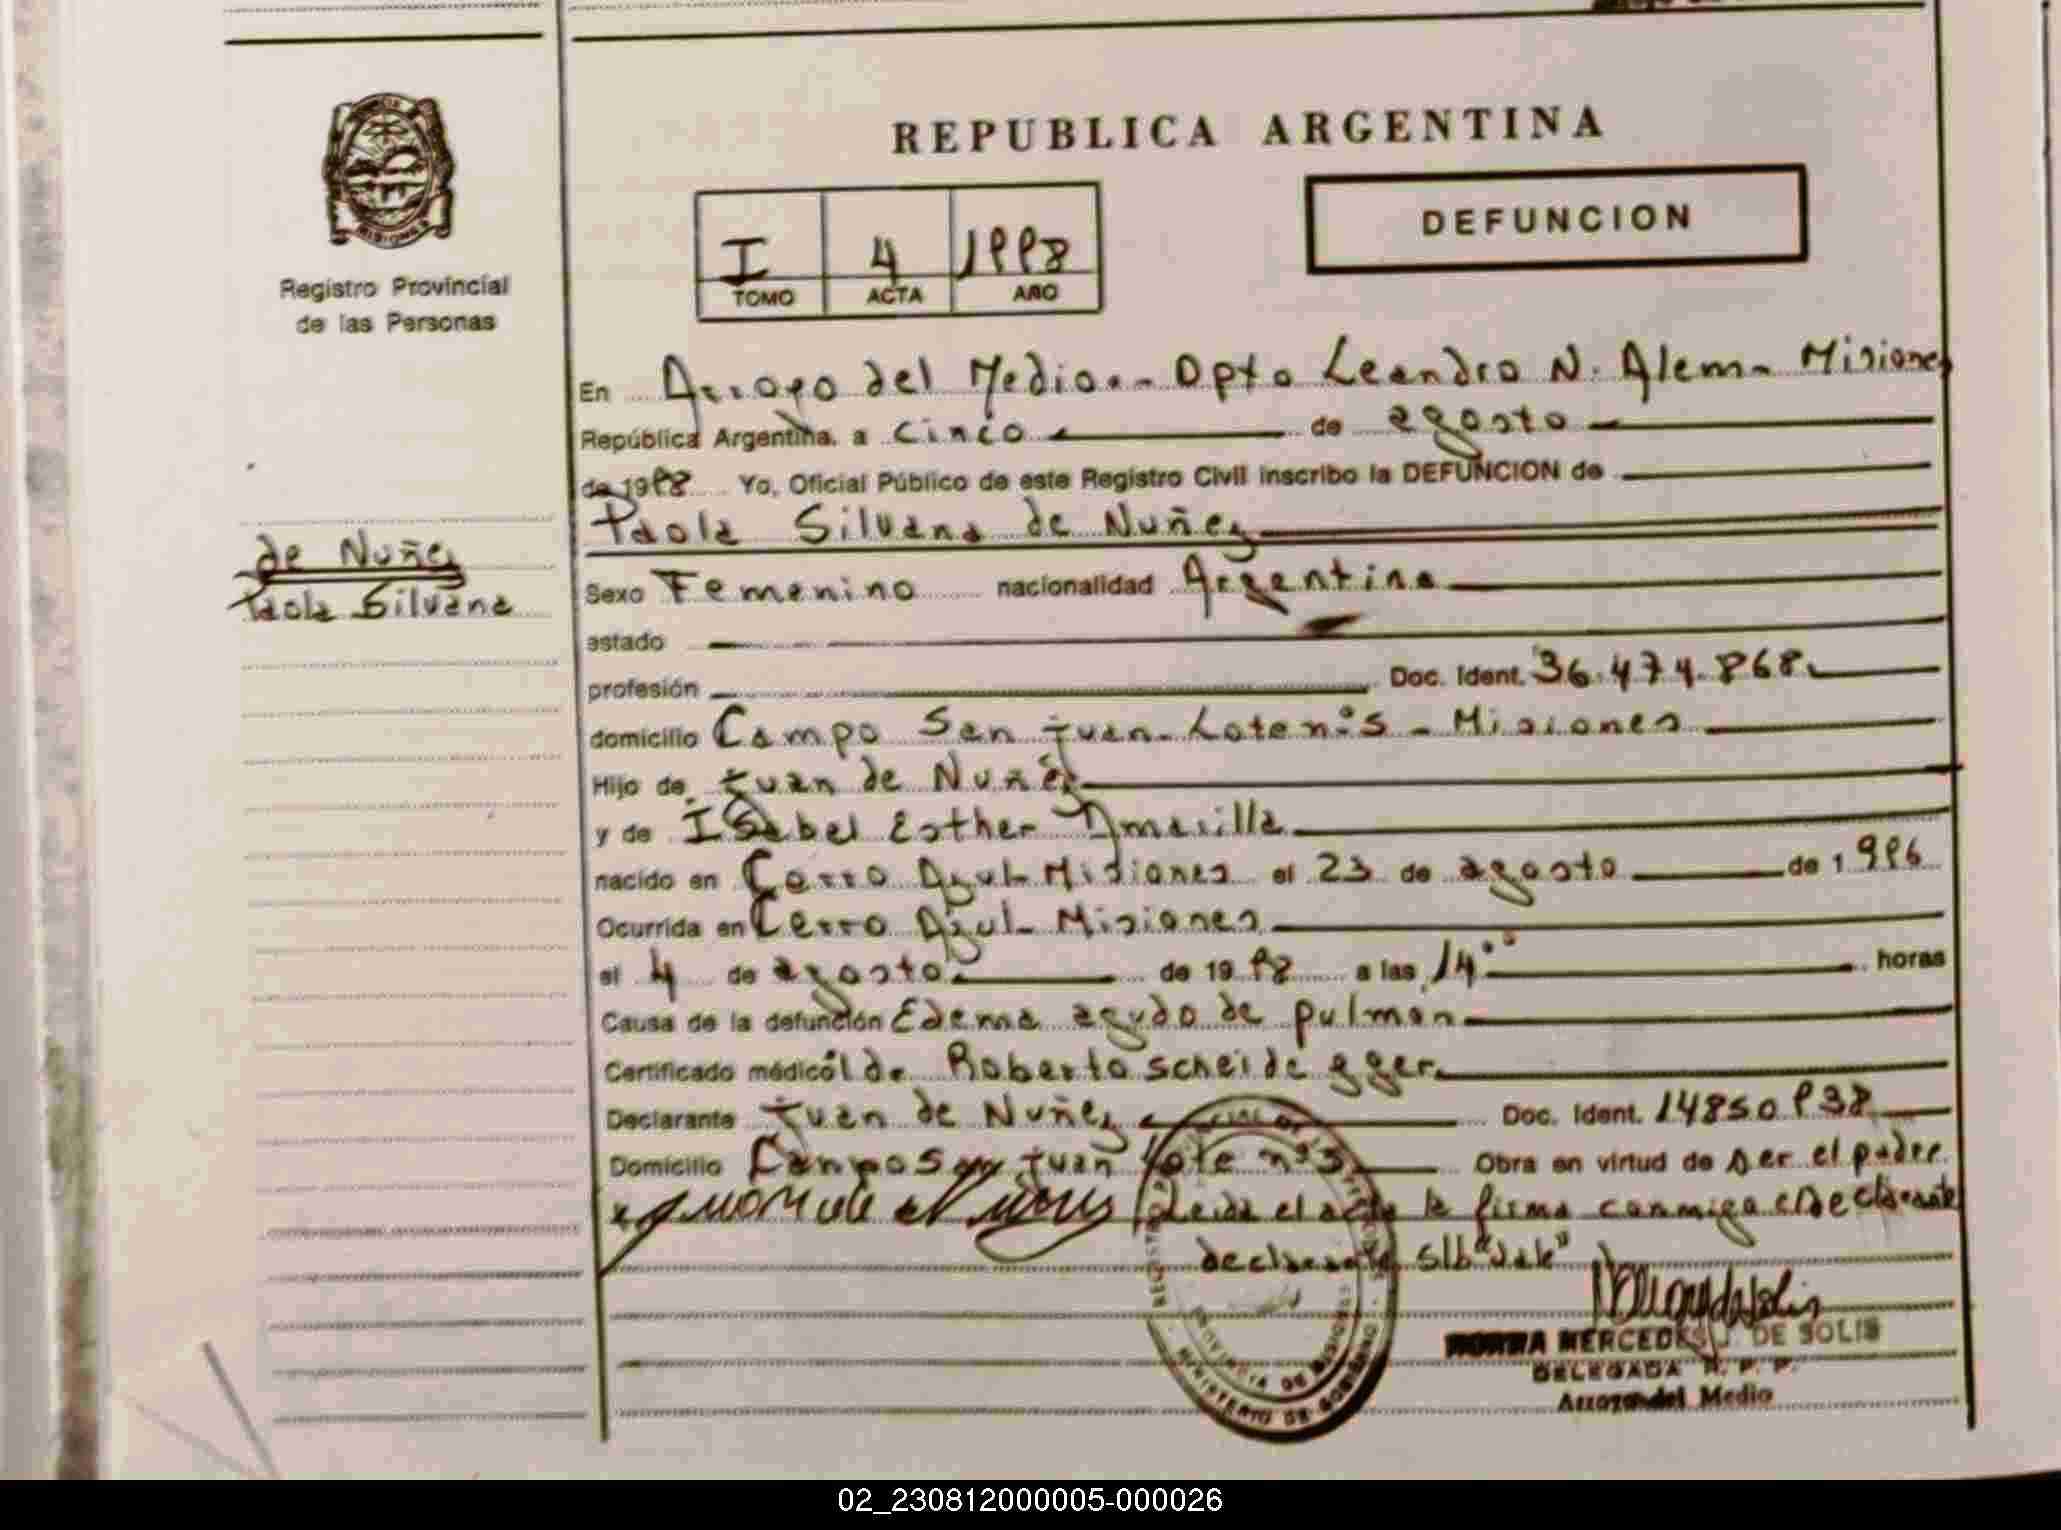 REPUBLICA ARGENTINA
MISIONES
Registro Provincial
de las Personas
I 4 1998
TOMO ACTA AÑO
DEFUNCION
En Arroyo del Medio.- Dpto Leandro N. Alem- Misiones
República Argentina, a cinco de agosto
de 1998 Yo, Oficial Público de este Registro Civil inscribo la DEFUNCION de
Paola Silvana de Nuñez
de Nuñez
Paola Silvana
Sexo Femenino nacionalidad Argentina
estado
profesión Doc. Ident. 36.474.868
domicilio Campo San Juan- Lote nº5 - Misiones
Hijo de Juan de Nuñez
y de Isabel Esther Amarilla
nacido en Cerro Azul- Misiones el 23 de agosto de 1996
Ocurrida en Cerro Azul- Misiones
el 4 de agosto de 1998 a las 14°° horas
Causa de la defunción Edema agudo de pulmon
Certificado médico Roberto scheidegger
Declarante Juan de Nuñez Doc. Ident. 14850938
Domicilio Campo San Juan lote nº5 Obra en virtud de ser el padre
Leida el acta la firma conmigo el declarante
declarante s/b "vale"
REGISTRO PROVINCIAL DE LAS PERSONAS
PROVINCIA DE MISIONES
MINISTERIO DE GOBIERNO
NORMA MERCEDES J. DE SOLIS
DELEGADA R. P. P.
Arroyo del Medio
02_230812000005-000026